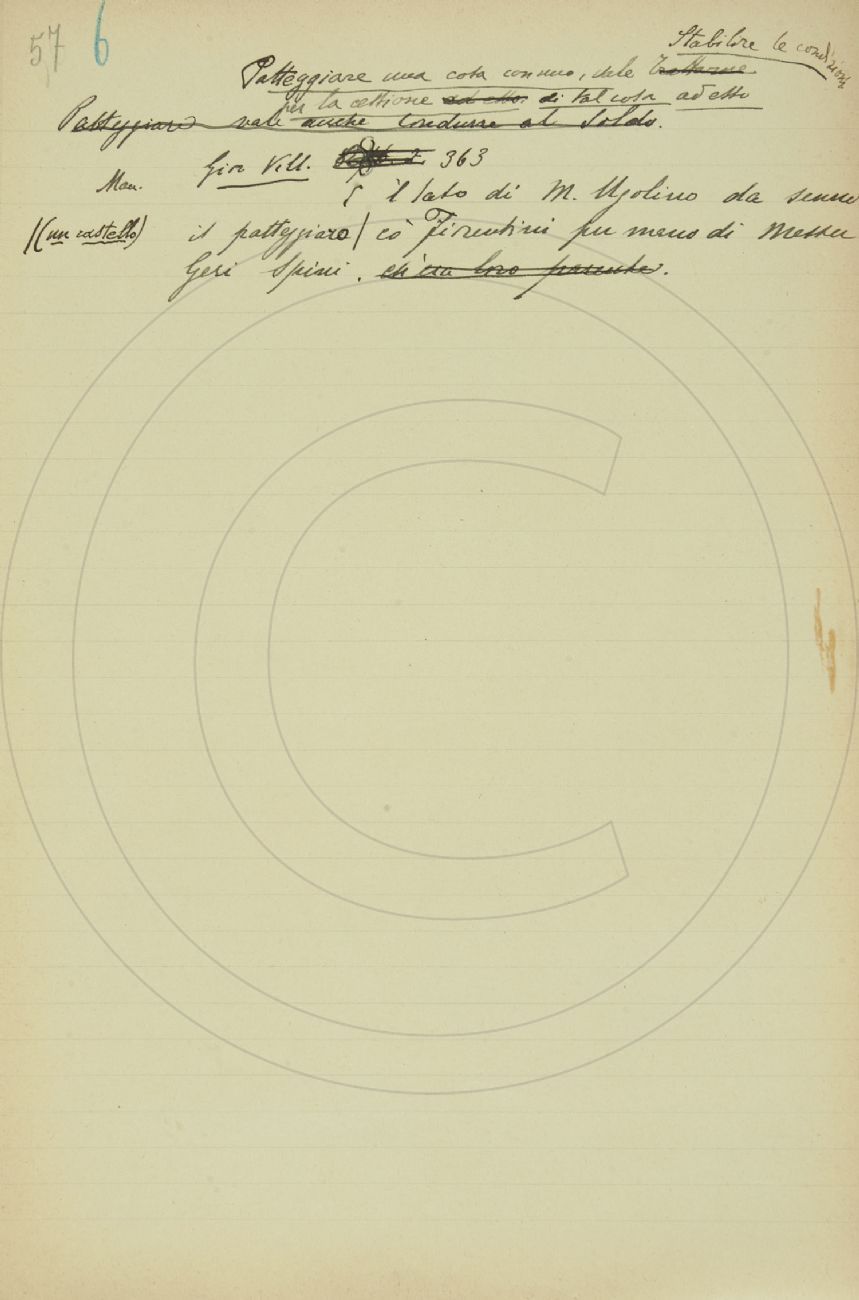 57 6
Stabilire le condizioni
Patteggiare una cosa con uno, vale Trattarne
per la cessione ad esso di tal cosa ad esso
Patteggiare vale anche Condurre al Soldo.
Gio. Vill. 363
Man. E 'l lato di M. Ugolino da senno
(un castello) il patteggiaro co' Fiorentini per meno di Messer
Geri Spini. ch'era loro parente.